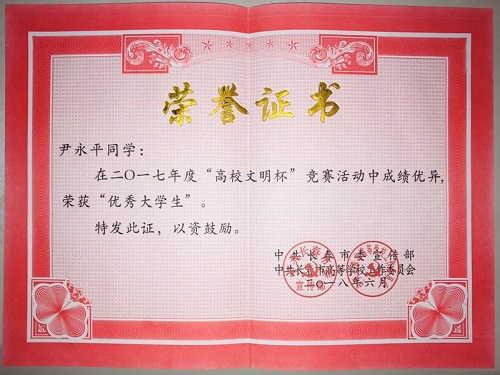 荣誉证书
尹永平同学：
在二〇一七年度“高校文明杯”竞赛活动中成绩优异，
荣获“优秀大学生”。
特发此证，以资鼓励。
中共长春市委宣传部
中共长春市高等学校工作委员会
二〇一八年六月
宣传部